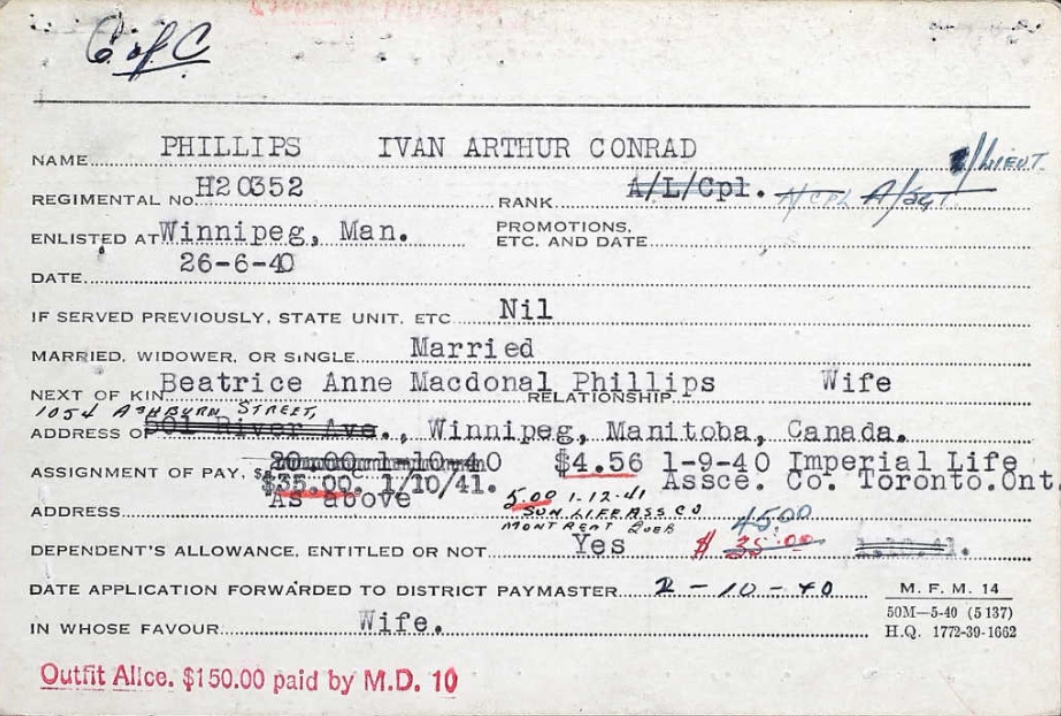 C of C
NAME PHILLIPS IVAN ARTHUR CONRAD
A/LIEUT.
REGIMENTAL NO. H20352 RANK A/L/Cpl. A/CPL A/Sgt
ENLISTED AT Winnipeg, Man. PROMOTIONS, ETC. AND DATE
DATE 26-6-40
IF SERVED PREVIOUSLY, STATE UNIT, ETC Nil
MARRIED, WIDOWER, OR SINGLE Married
NEXT OF KIN Beatrice Anne Macdonal Phillips RELATIONSHIP Wife
1054 ASHBURN STREET,
ADDRESS OF 501 River Ave., Winnipeg, Manitoba, Canada.
ASSIGNMENT OF PAY, $ 20.00 1-10-40 $4.56 1-9-40 Imperial Life
$35.00. 1/10/41. Assce. Co. Toronto.Ont.
ADDRESS As above 5.00 1-12-41
SUN LIFE ASS CO
MONTREAL QUEB
45.00
DEPENDENT'S ALLOWANCE, ENTITLED OR NOT Yes $ 35.00 1.10.41.
DATE APPLICATION FORWARDED TO DISTRICT PAYMASTER 2-10-40
IN WHOSE FAVOUR Wife.
M. F. M. 14
50M—5-40 (5137)
H.Q. 1772-39-1662
Outfit Allce. $150.00 paid by M.D. 10